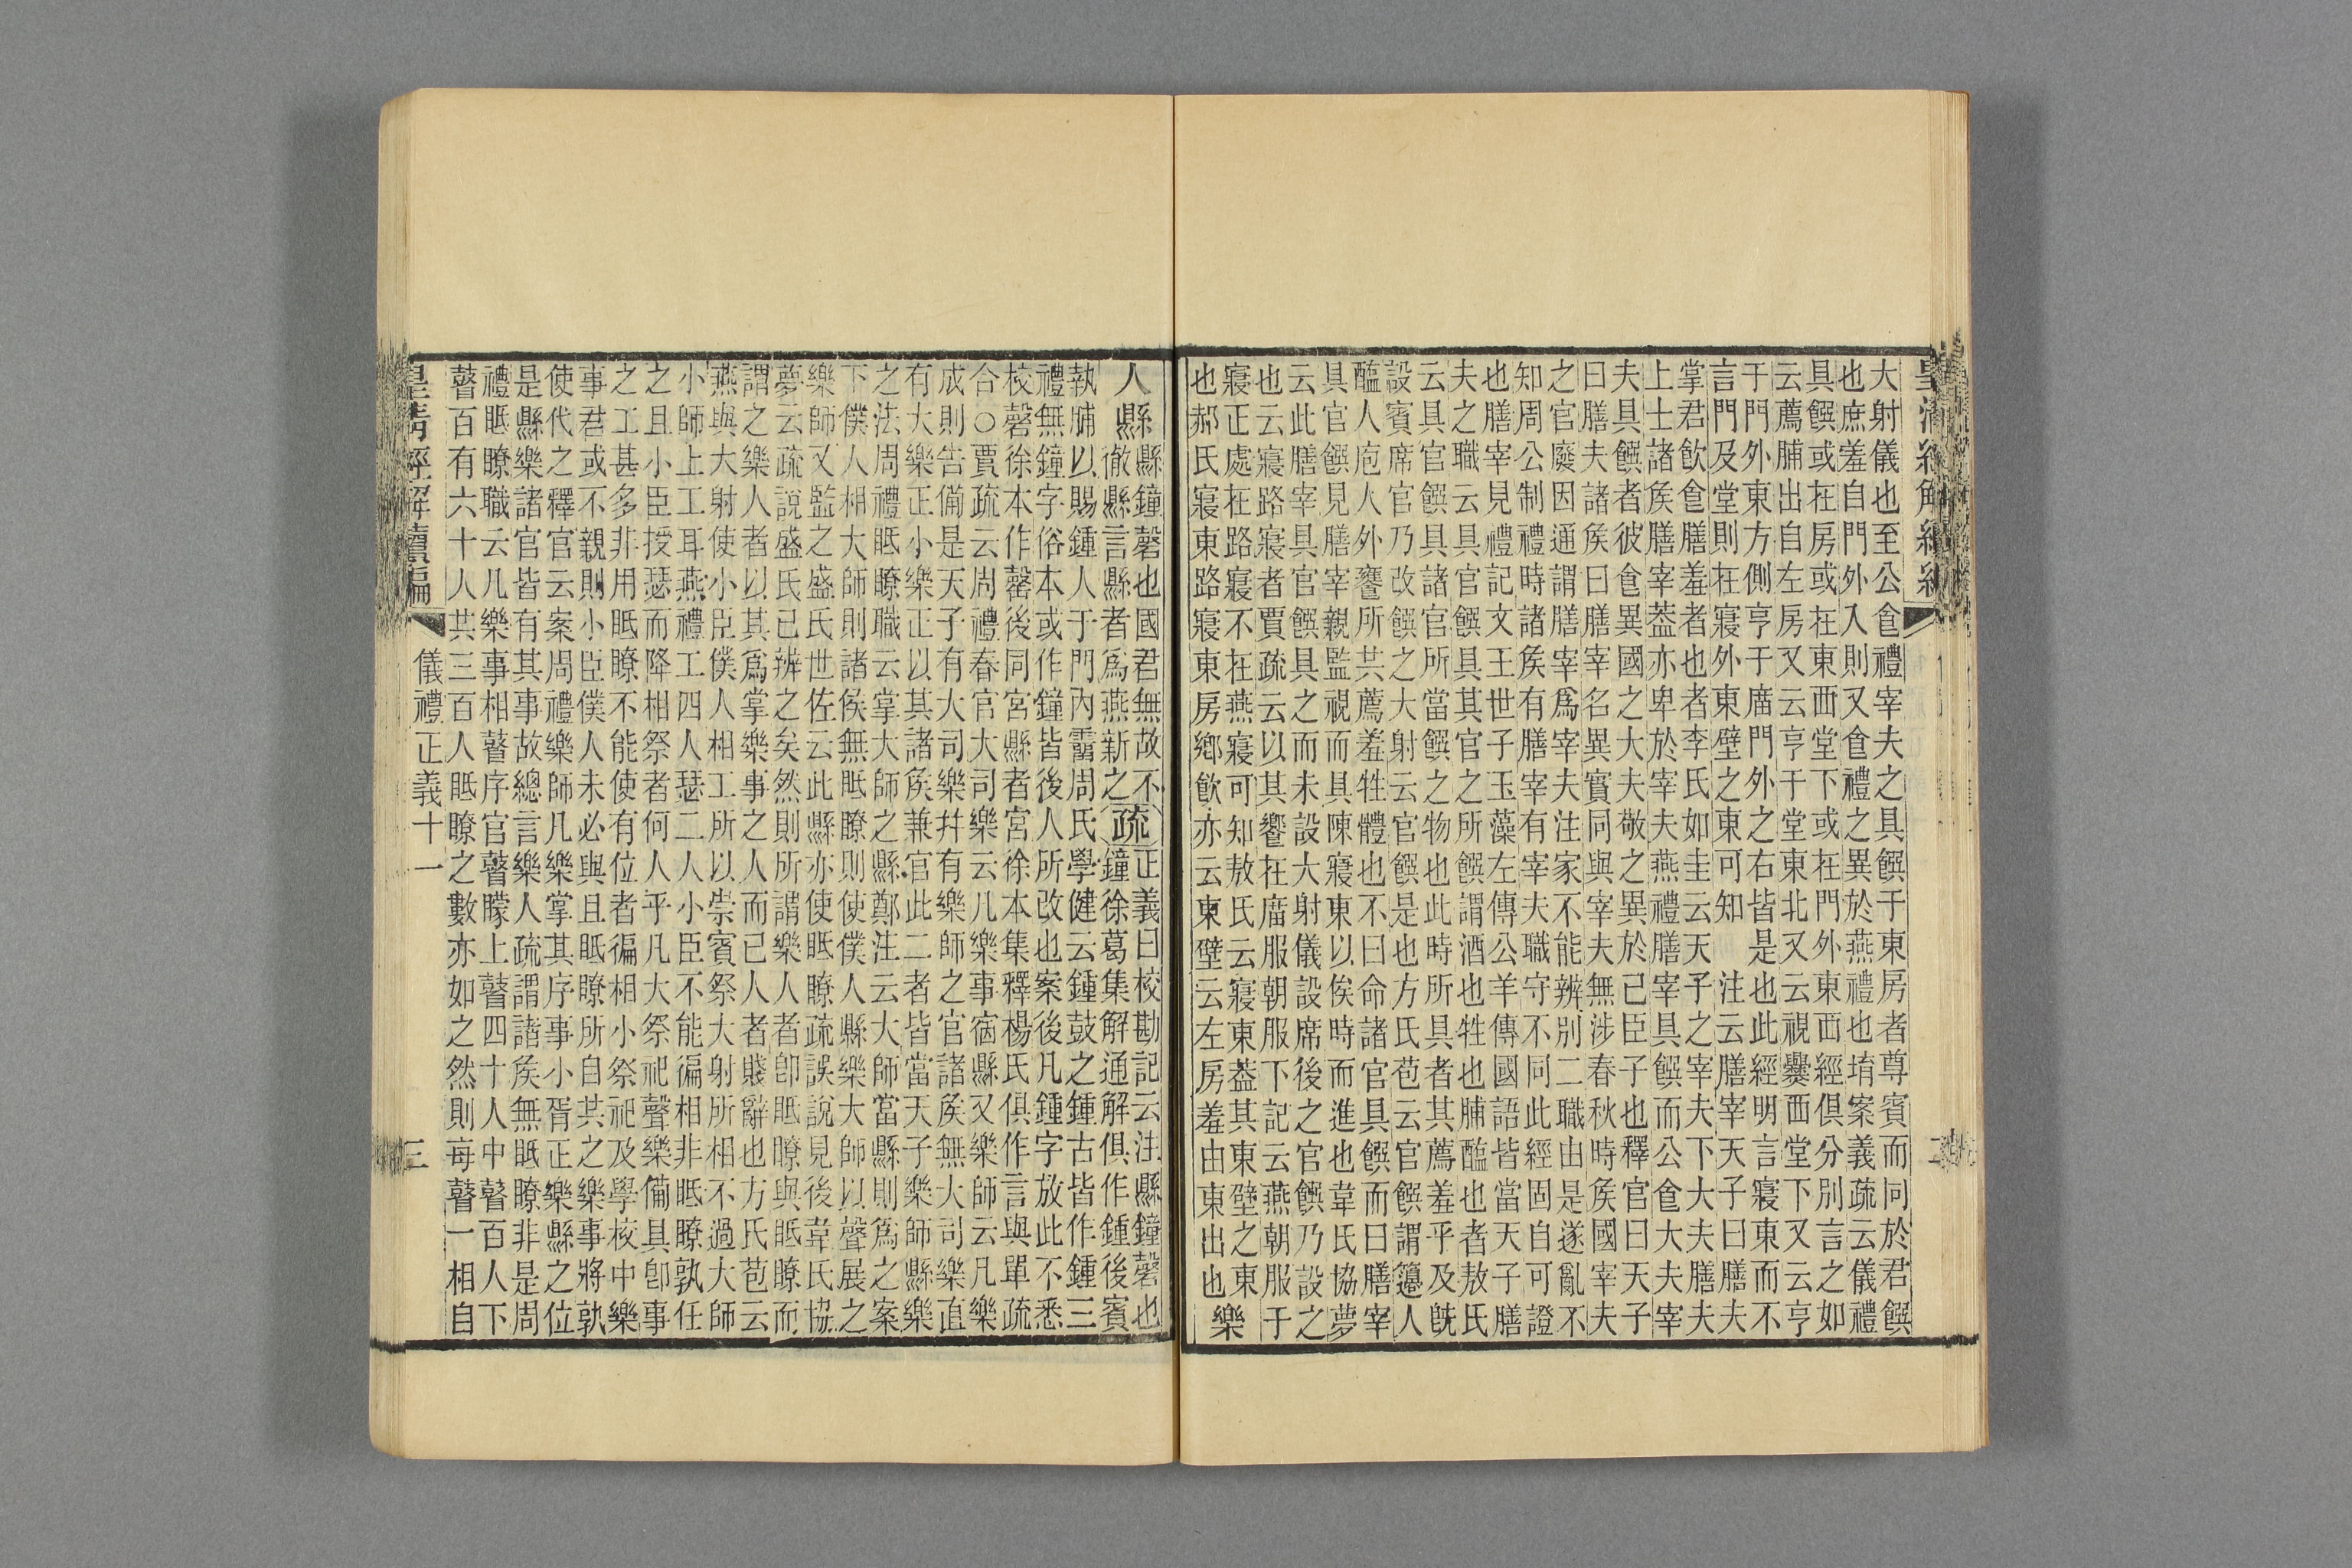 大射儀也至公飠禮宰夫之具饌于東房者尊賓而同於君饌
也庶羞自門外入則又飠禮之異於燕禮也堉案義疏云儀禮
具饌或在房或在東西堂下或在門外東西經俱分別言之如
云薦脯出自左房又云亨于堂東北又云視爨西堂下又云亨
于門外東方側亨于廣門外之右皆是也此經明言寢東而不
言門及堂則在寢外東壁之東可知　注云膳宰天子曰膳夫
掌君飮飠膳羞者也者李氏如圭云天子之宰夫下大夫膳夫
上士諸矦膳宰葢亦卑於宰夫燕禮膳宰具饌而公飠大夫宰
夫具饌者彼飠異國之大夫敬之異於已臣子也釋官曰天子
曰膳夫諸矦曰膳宰名異實同與宰夫無涉春秋時矦國宰夫
之官廢因通謂膳宰爲宰夫注家不能辨別二職由是遂亂不
知周公制禮時諸矦有膳宰有宰夫職守不同此經固自可證
也膳宰見禮記文王世子玉藻左傳公羊傳國語皆當天子膳
夫之職云具官饌具其官之所饌謂酒也牲也脯醢也者敖氏
云具官饌具諸官所當饌之物也此時所具者其薦羞乎及旣
設賓席官乃改饌之大射云官饌是也方氏苞云官饌謂籩人
醢人庖人外饔所共薦羞牲體也不曰命諸官具饌而曰膳宰
具官饌見膳宰親監視而具陳寢東以俟時而進也韋氏協夢
云此膳宰具官饌具之而未設大射儀設席後之官饌乃設之
也云寢路寢者賈疏云以其饗在廣服朝服下記云燕朝服于
寢正處在路寢不在燕寢可知敖氏云寢東葢其東壁之東
也郝氏寢東路寢東房鄉飮亦云東壁云左房羞由東出也
樂
皇淸經解續編
人縣
縣鐘磬也國君無故不
徹縣言縣者爲燕新之
疏
正義曰校勘記云注縣鐘磬也
鐘徐葛集解通解俱作鍾後賓
執脯以賜鍾人于門內霤周氏學健云鍾鼓之鍾古皆作鍾三
禮無鐘字俗本或作鐘皆後人所改也案後凡鍾字放此不悉
校磬徐本作罄後同宮縣者宮徐本集釋楊氏俱作言與單疏
合○賈疏云周禮春官大司樂云凡樂事宿縣又樂師云凡樂
成則告備是天子有大司樂幷有樂師之官諸矦無大司樂直
有大樂正小樂正以其諸矦兼官此二者皆當天子樂師縣樂
之法周禮眡瞭職云掌大師之縣鄭注云大師當縣則爲之案
下僕人相大師則諸侯無眡瞭則使僕人縣樂大師以聲展之
樂師又監之盛氏世佐云此縣亦使眡瞭疏誤說見後韋氏協
夢云疏說盛氏已辨之矣然則所謂樂人者卽眡瞭與眡瞭而
謂之樂人者以其爲掌樂事之人而已人者賤辭也方氏苞云
燕與大射使小臣僕人相工所以崇賓祭大射所相不過大師
小師上工耳燕禮工四人瑟二人小臣不能徧相非眡瞭孰任
之且小臣授瑟而降相祭者何人乎凡大祭祀聲樂備具卽事
之工甚多非用眡瞭不能使有位者徧相小祭祀及學校中樂
事君或不親則小臣僕人未必與且眡瞭所自共之樂事將孰
使代之釋官云案周禮樂師凡樂掌其序事小胥正樂縣之位
是縣樂諸官皆有其事故總言樂人疏謂諸矦無眡瞭非是周
禮眡瞭職云凡樂事相瞽序官瞽矇上瞽四十人中瞽百人下
瞽百有六十人共三百人眡瞭之數亦如之然則每瞽一相自
皇清經解續編
儀禮正義十一
三